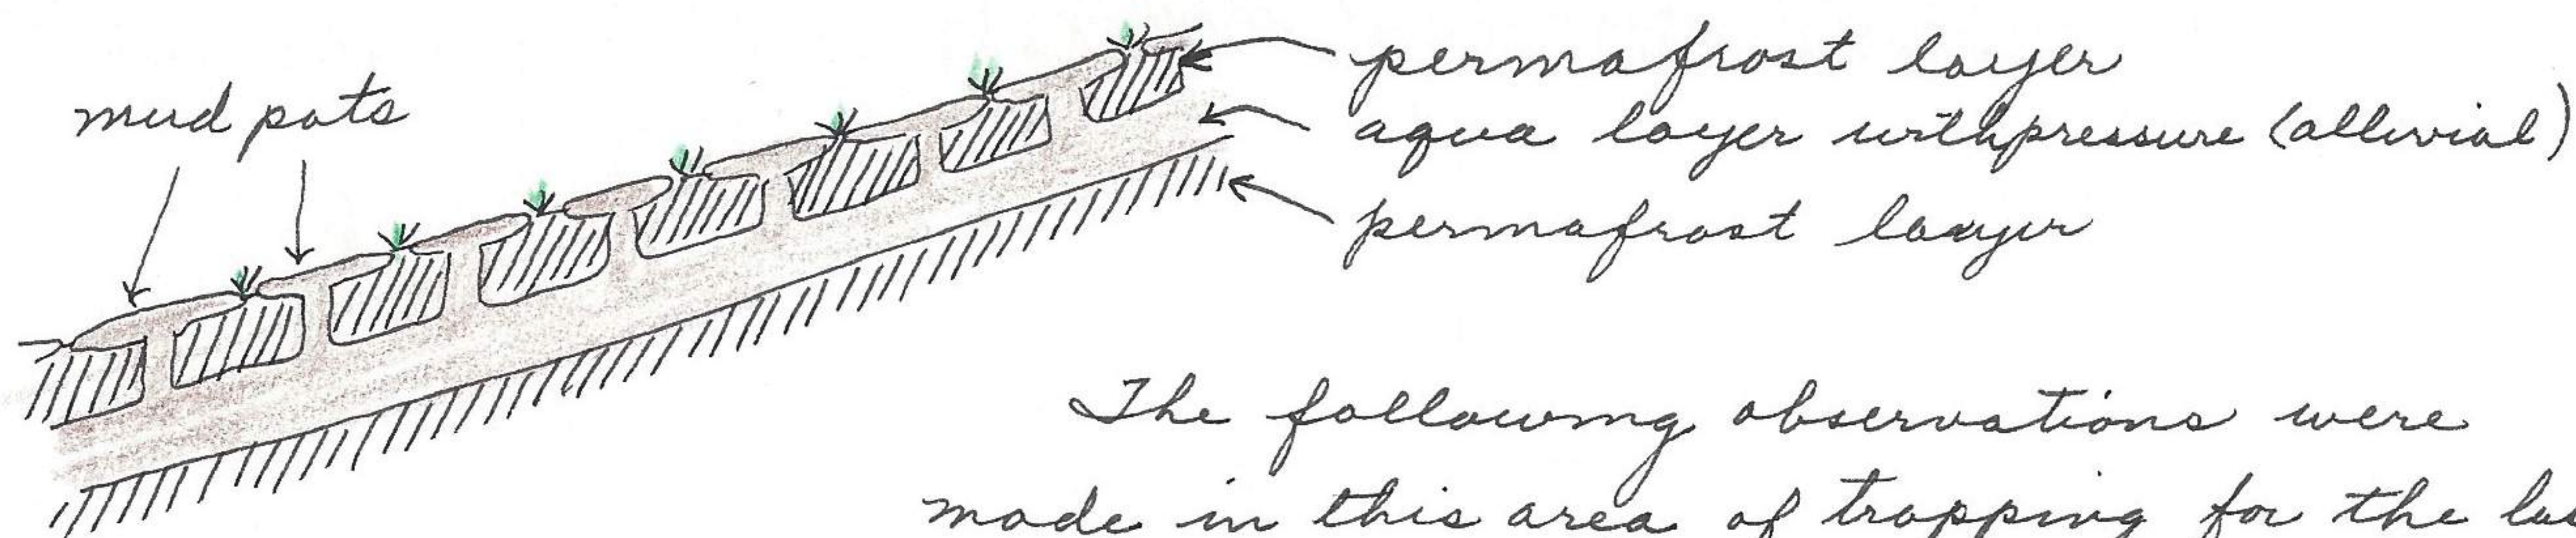 mud pots
permafrost layer
aqua layer with pressure (alluvial)
permafrost layer
The following observations were
made in this area of trapping for the